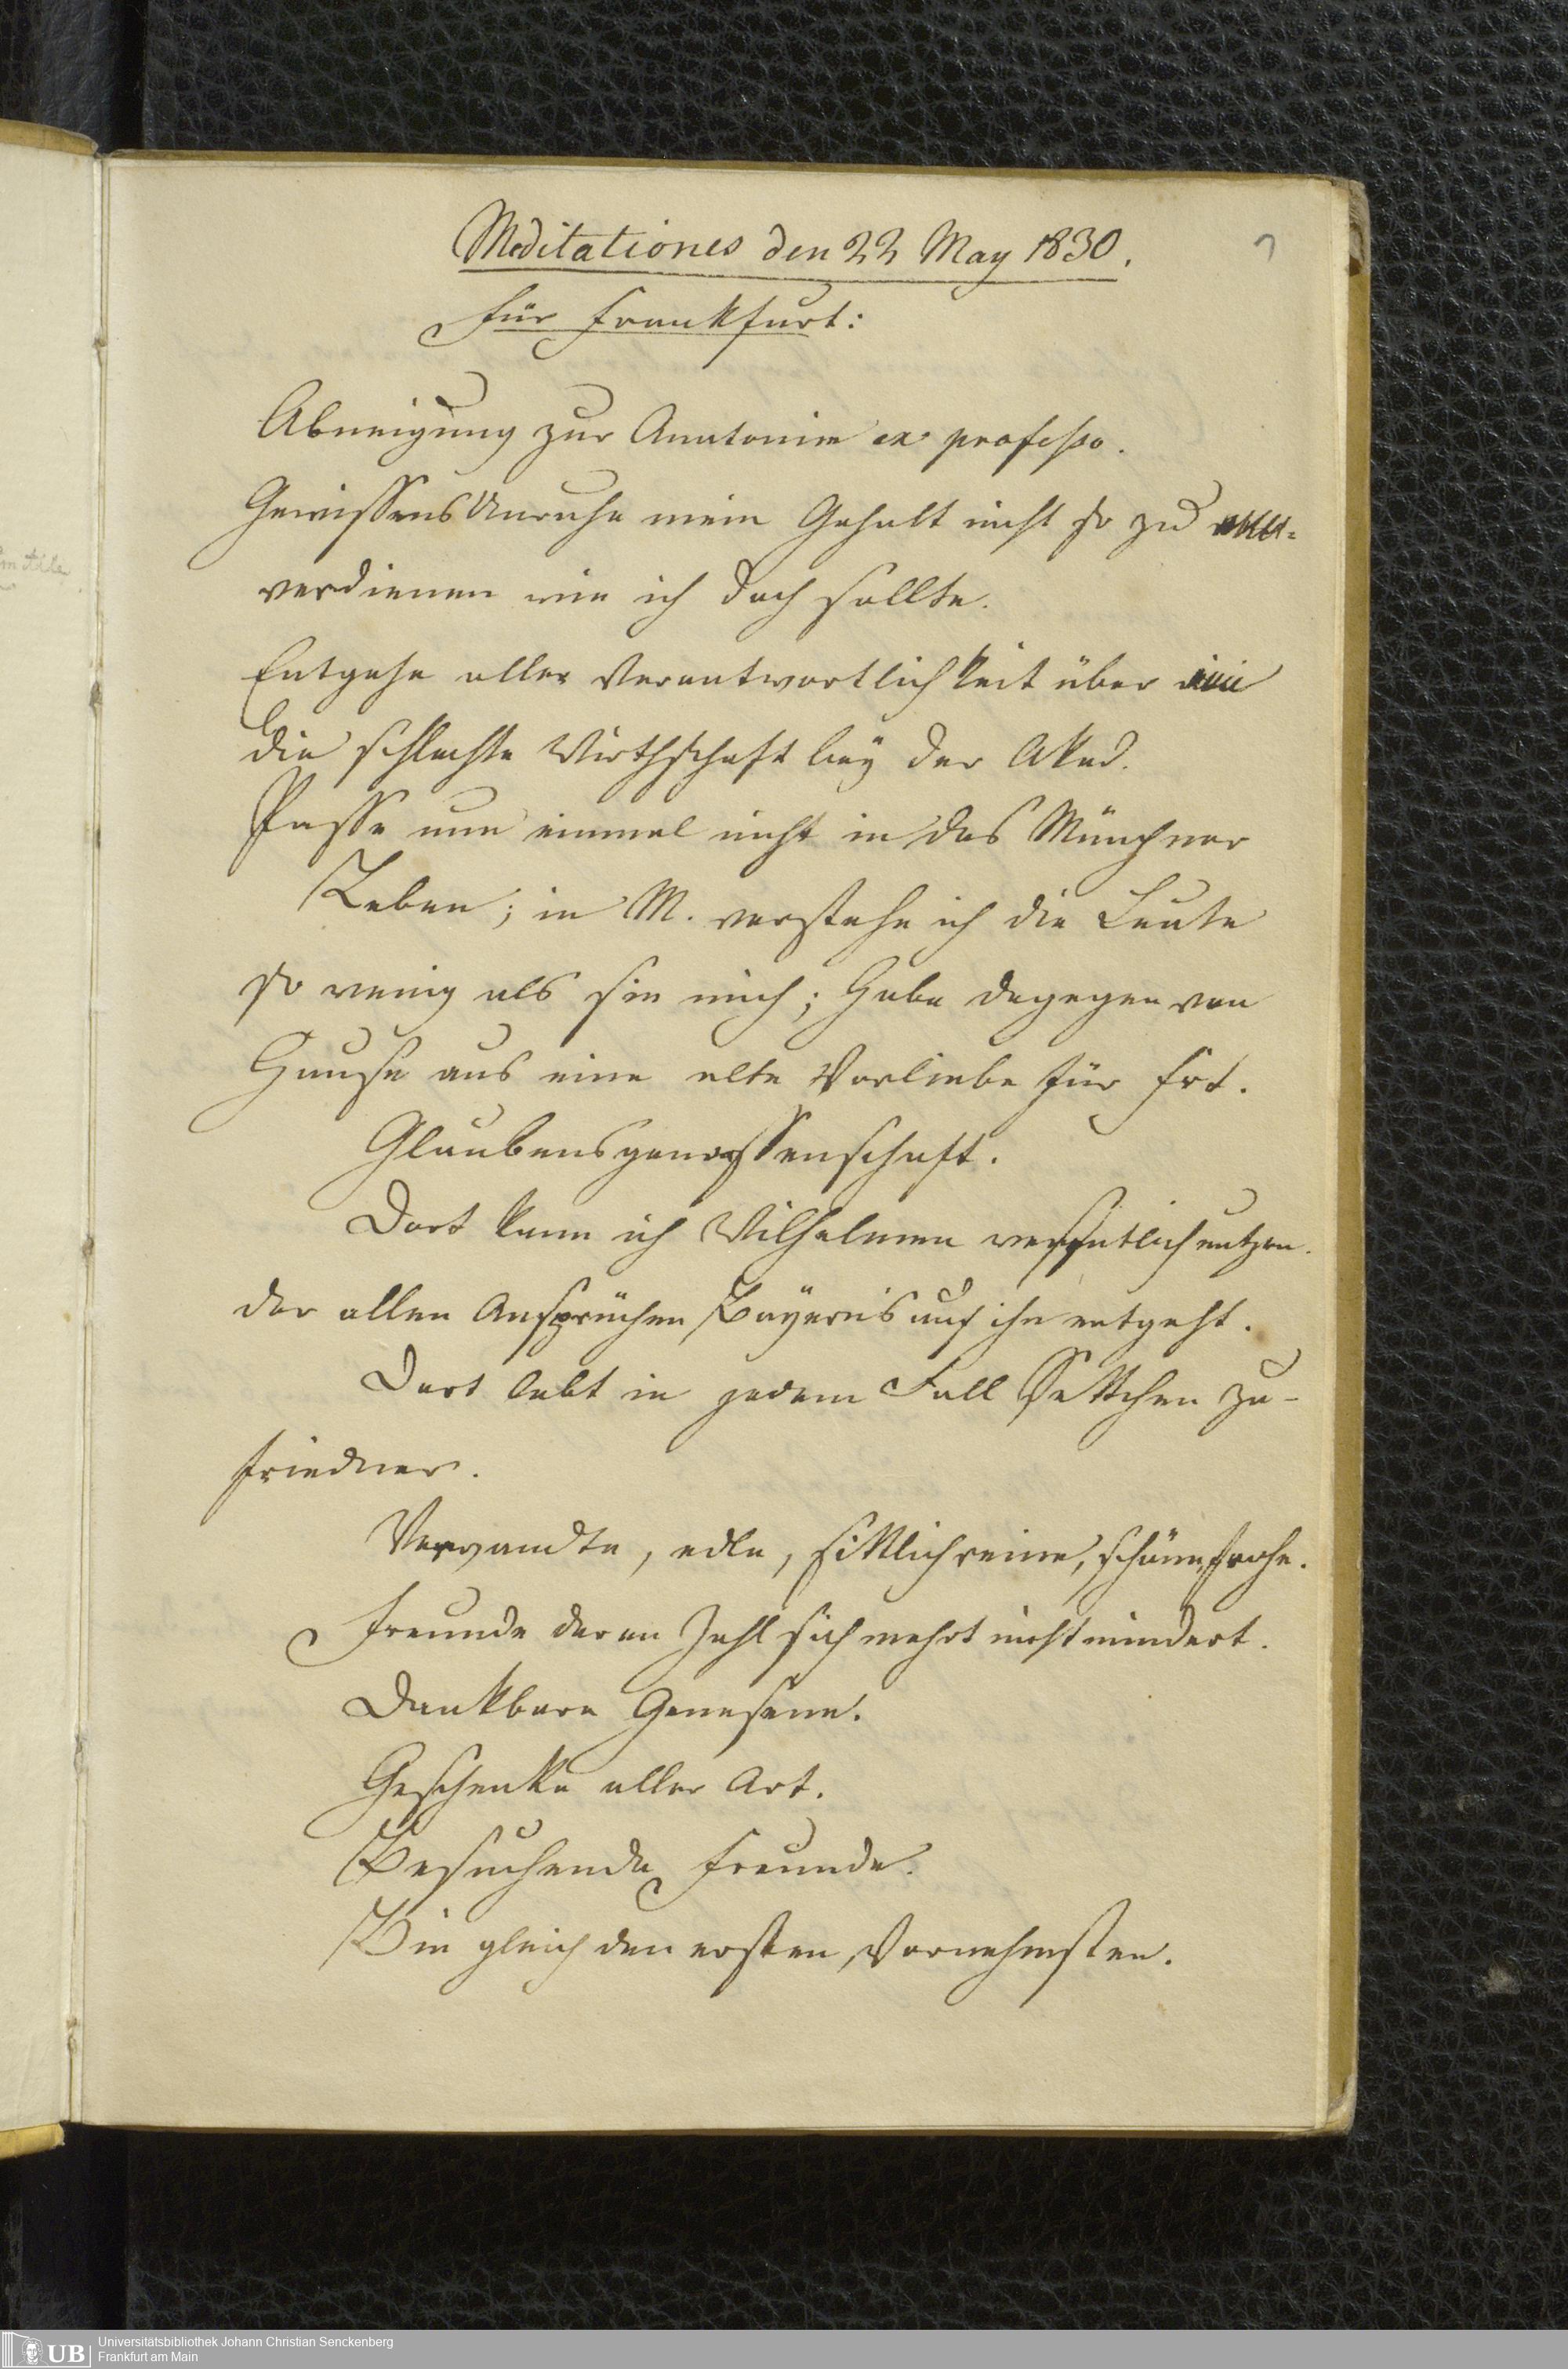 Meditationes den 22 May 1830.
7
für Frankfurt:
Abneigung zur Anatomie ex professo.
GewissensUnruhe mein Gehalt nicht so zu
verdienen wie ich doch sollte.
Entgehe aller Verantwortlichkeit über
die schlechte Wirthschaft bey der Akad.
Passe nun einmal nicht in das Münchner
Leben; in M. verstehe ich die Leute
so wenig als sie mich; Habe dagegen von
Hause aus eine alte Vorliebe für Frt.
Glaubensgenossenschaft.
Dort kann ich Wilhelmen wesentlich nutzen.
der allen Ansprüchen Bayerns auf ihn entgeht.
Dort lebt in jedem Fall Settchen zu-
friedner.
Verwandte, edle, sittlichreine, schöne, frohe.
Freunde deren Zahl sich mehrt nicht mindert.
Dankbare Genesene.
Geschenke aller Art.
Besuchende Freunde.
Bin gleich den ersten, Vornehmsten.
UB
Universitätsbibliothek Johann Christian Senckenberg
Frankfurt am Main